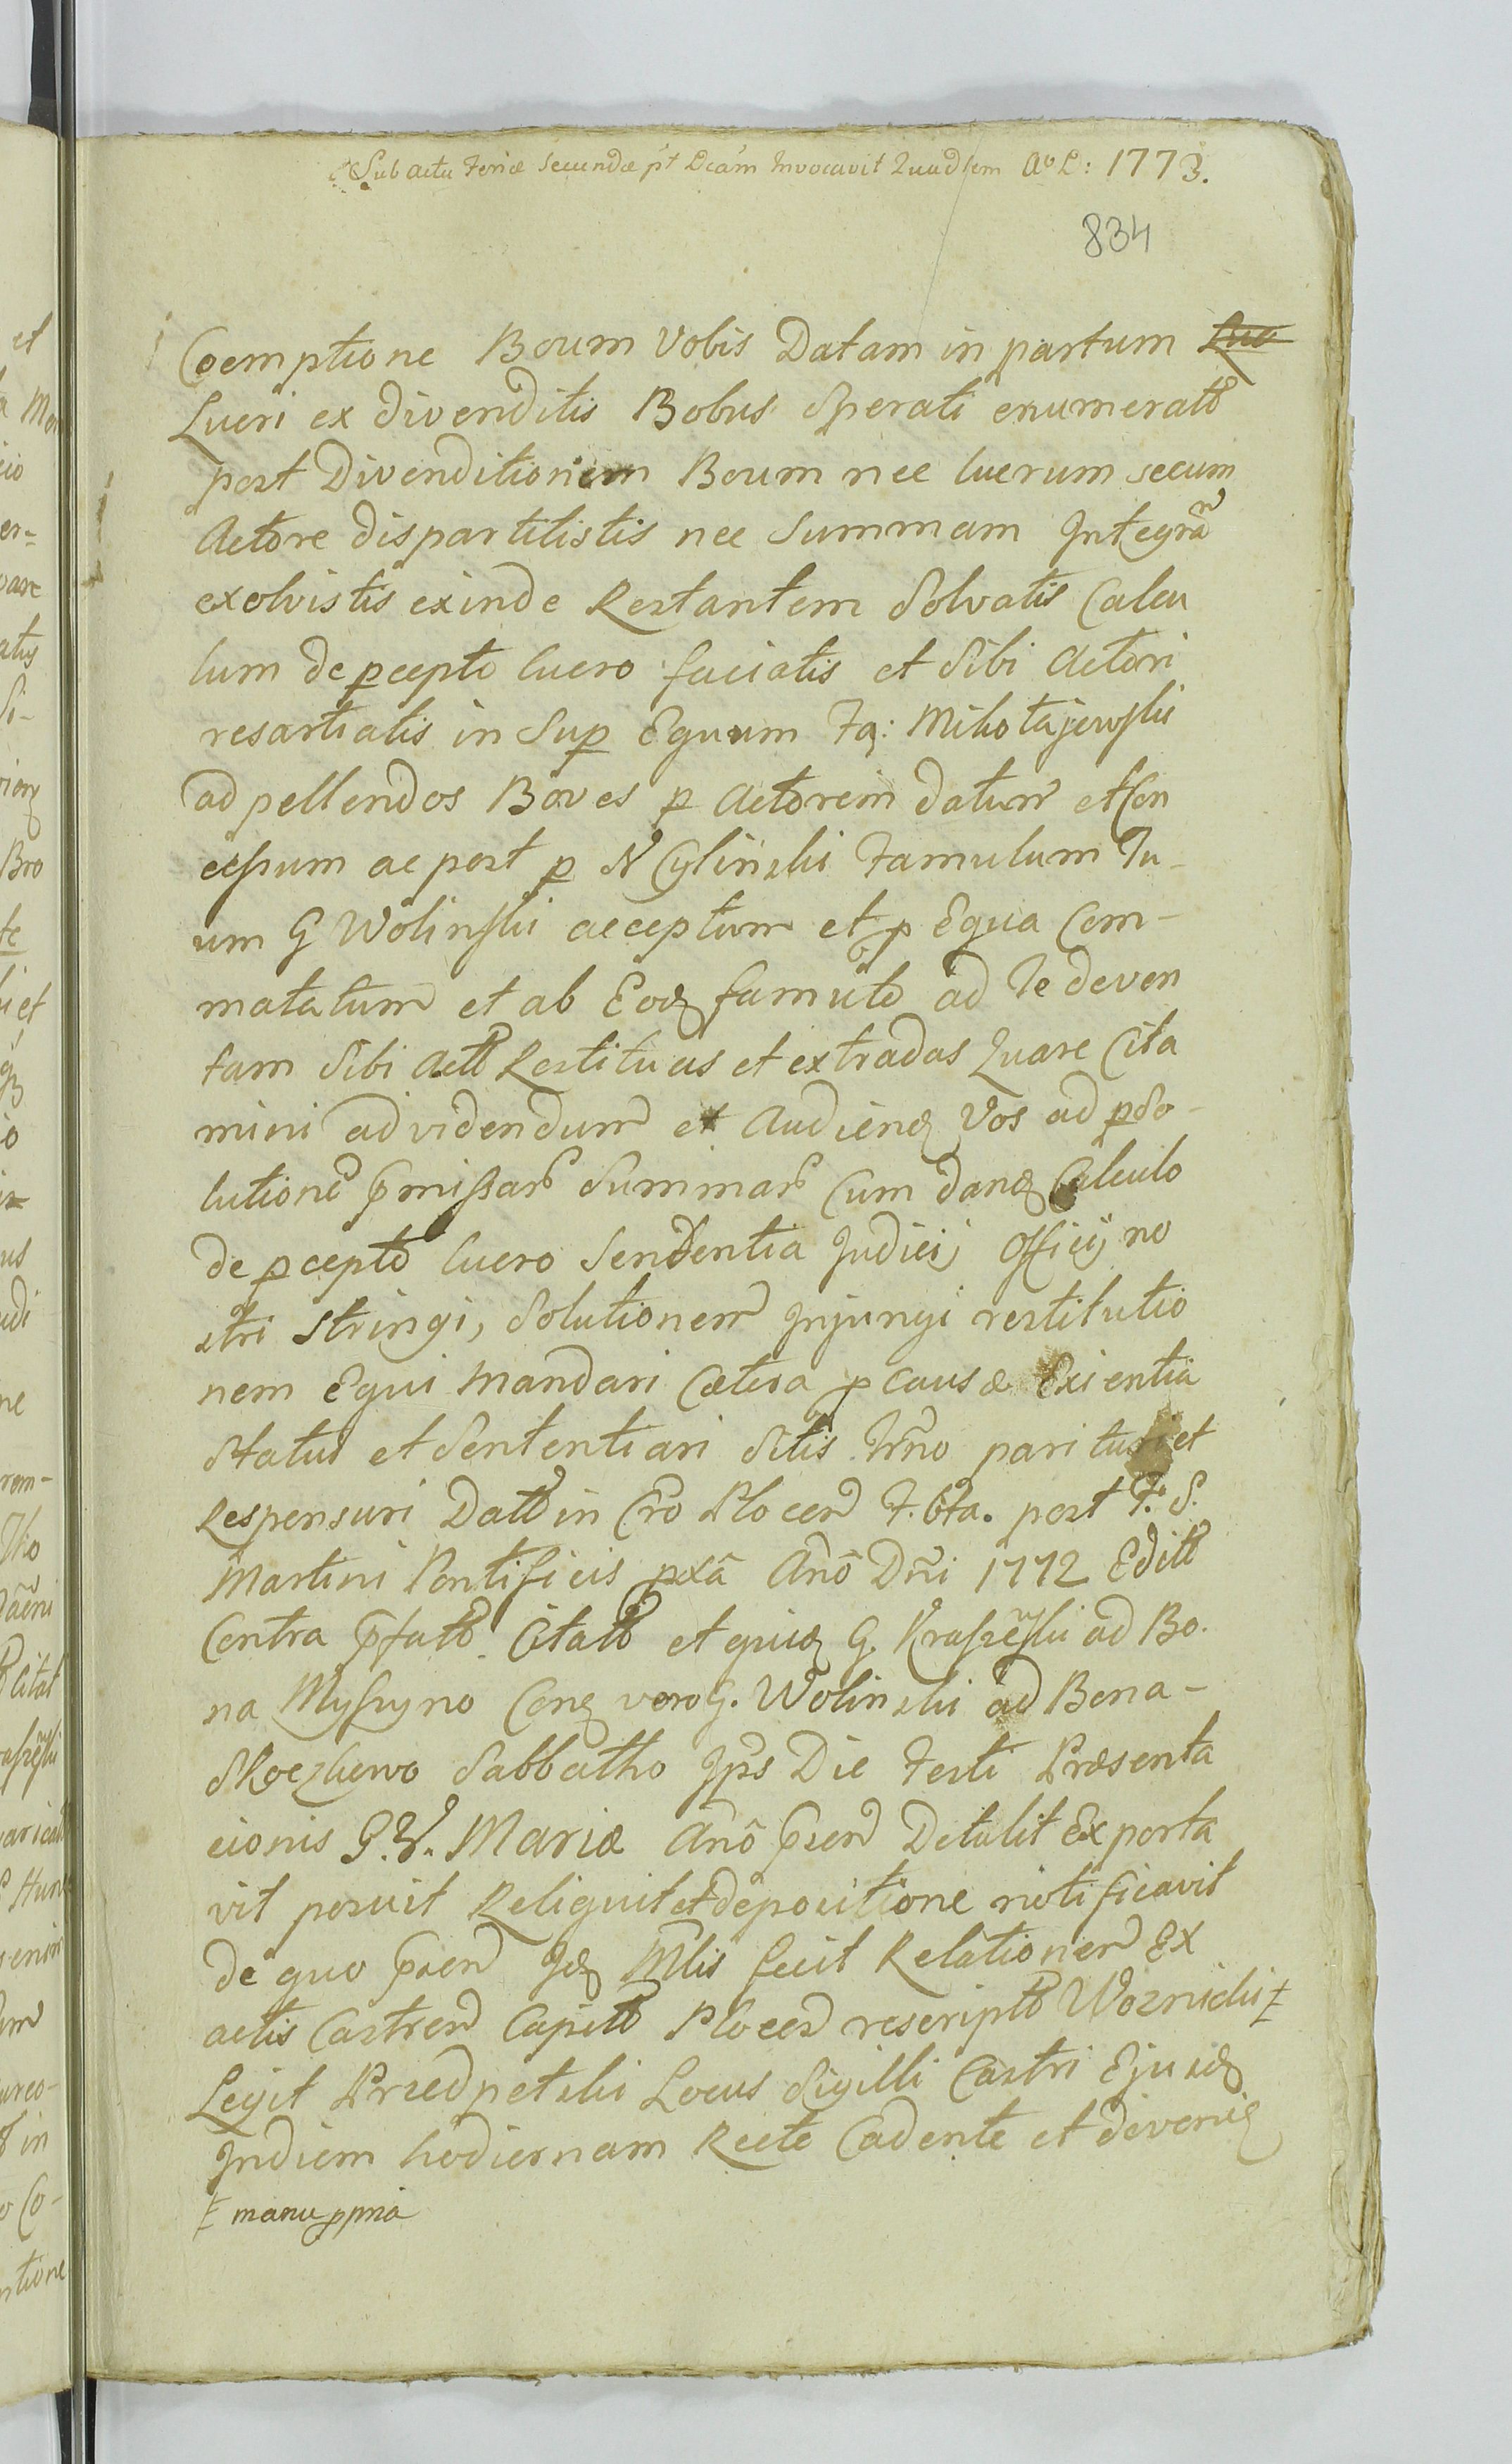 Sub actu Feriæ Secundæ pt Dcam Invocavit Quadlem Ao D: 1773.
834
Coemptione Boum Vobis Datam in partum Luc
Lucri ex divenditis Bobus Sperati enumerato
post Divenditionem Boum nec lucrum secum
Actore dispartitistis nec Summam Integrã
exolvistis exinde Restantem Solvatis Calcu
lum de pcepto lucro faciatis et Sibi Actori
resartiatis in Sup Equum Fa: Mikołajewski
ad pellendos Boves p Actorem datum et Con
cessum ac post p N Cyliński Famulum Tu-
um G Wolinski acceptum et p Equa Com-
matatum et ab Eodq famulo ad Te deven
tam Sibi Actto Restituas et extradas Quare Cita
mini ad videndum et Audiendq Vos ad pso-
lutione pmissar Summar Cum dandq Calculo
de pcepto lucro Sententia Judicij Officij no
stri stringi, Solutionem Injungi restitutio
nem Equi Mandari Cætera p causæ Exientia
Statui et Sententiari Sitis Trno parituri et
Responsuri Datto in Cro Plocen F. 6ta. post F. S.
Martini Pontificis pxã Anõ Dñi 1772 Editto
Contra pfatto Citatto et quidq G. Kraszẽski ad Bo.
na Myszyno Conq vero G. Wolinski ad Bona-
Skoczkowo Sabbatho Ips Die Festi Præsenta
cionis B. V. Mariæ Anõ psen Detulit Exporta
vit posuit Reliquit et depositione notificavit
de quo psen Idq Mlis fecit Relationem Ex
actis Castren Capitto Plocen rescripto Woznicki ⧧
Legit Przedpetski Locus Sigilli Castri Ejusdq
Indiem hodiernam Recte Cadente et devenieq
⧧ manu ppria